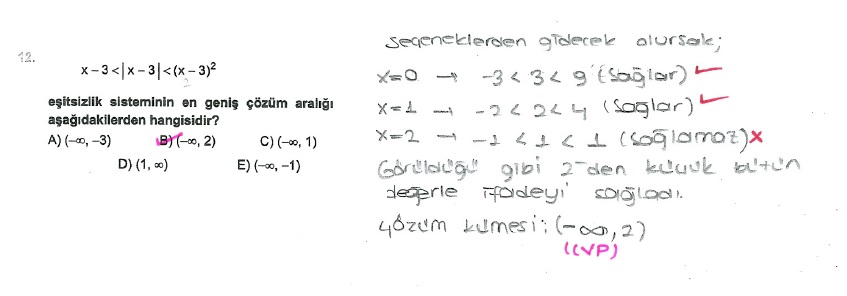 12.
x – 3 < | x – 3 | < (x – 3)²
eşitsizlik sisteminin en geniş çözüm aralığı
aşağıdakilerden hangisidir?
A) (–∞, –3) B) (–∞, 2) C) (–∞, 1)
D) (1, ∞) E) (–∞, –1)
Seçeneklerden gidecek olursak;
x=0 → -3 < 3 < 9 (sağlar) ✓
x=1 → -2 < 2 < 4 (sağlar) ✓
x=2 → -1 < 1 < 1 (sağlamaz) x
Görüldüğü gibi 2-den küçük bütün
değerle ifadeyi sağladı.
Çözüm kümesi; (-∞, 2)
((VP)